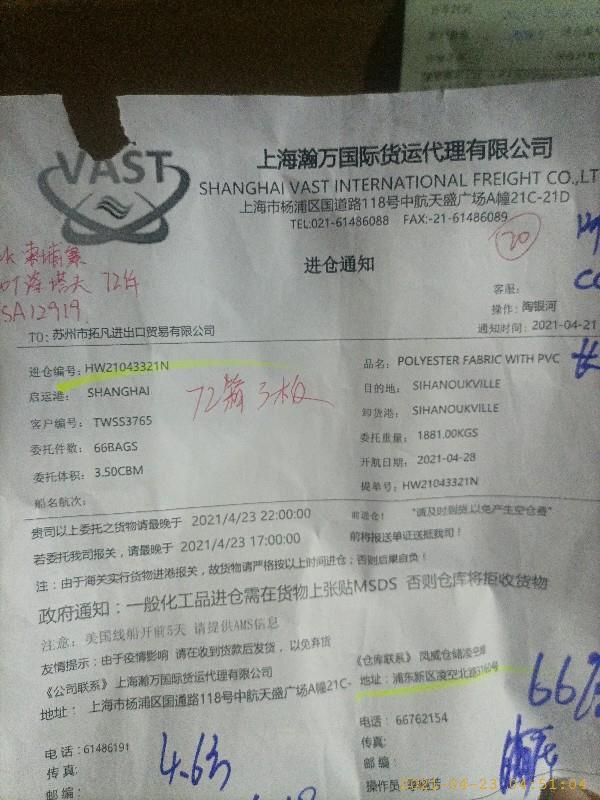 VAST
上海瀚万国际货运代理有限公司
SHANGHAI VAST INTERNATIONAL FREIGHT CO.,LT
上海市杨浦区国道路118号中航天盛广场A幢21C-21D
TEL:021-61486088 FAX:-21-61486089
20
进仓通知
柬埔寨
72件
SA12919
客服:
操作: 陶银河
TO: 苏州市拓凡进出口贸易有限公司
通知时间: 2021-04-21
进仓编号: HW21043321N
品名: POLYESTER FABRIC WITH PVC
启运港: SHANGHAI
72箱3板
目的地: SIHANOUKVILLE
客户编号: TWSS3765
卸货港: SIHANOUKVILLE
委托件数: 66BAGS
委托重量: 1881.00KGS
委托体积: 3.50CBM
开航日期: 2021-04-28
船名航次:
提单号: HW21043321N
贵司以上委托之货物请最晚于 2021/4/23 22:00:00 前进仓! "请及时到货,以免产生空仓费"
若委托我司报关,请最晚于 2021/4/23 17:00:00 前将报送单证送抵我司!
注:由于海关实行货物进港报关,故货物请严格按以上时间进仓;否则后果自负!
政府通知:一般化工品进仓需在货物上张贴MSDS 否则仓库将拒收货物
注意:美国线船开前5天 请提供AMS信息
友情提示:由于疫情影响 请在收到货款后发货,以免弃货
《公司联系》上海瀚万国际货运代理有限公司
《仓库联系》凤威仓储凌空库
地址: 上海市杨浦区国通路118号中航天盛广场A幢21C-
地址: 浦东新区凌空北路3160号
66
电话: 61486191
电话: 66762154
传真:
传真:
4.6
邮编:
邮编:
操作员:
2021-04-23 04:51:04